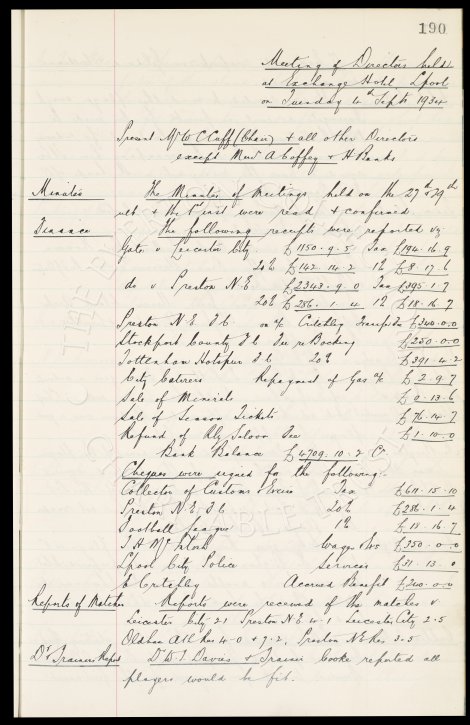 190
Meeting of Directors held
at Exchange Hotel Lpool
on Tuesday 4th Septr 1934
Present Mr W C Cuff (Chair) & all other Directors
except Messrs A Coffey & H Banks
Minutes The Minutes of Meetings held on the 27th & 29th
ult & the 1st inst were read & confirmed
Finance The following receipts were reported viz
Gate v Leicester City £1150.9.5 Tax £194.16.9
20% £142.14.2 1% £8.17.6
do v Preston N.E £2343.9.0 Tax £395.1.7
20% £286.1.4 1% £18.16.7
Preston N.E. F.C. on a/c Critchley Transfer £340.0.0
Stockport County F.C. Fee re Bocking £250.0.0
Tottenham Hotspur F.C 20% £391.4.2
City Caterers Repayment of Gas a/c £2.9.7
Sale of Minerals £0.13.6
Sale of Season Tickets £76.14.7
Refund of Rly Saloon Fee £1.10.0
Bank Balance £4709.10.2 Cr
Cheques were signed for the following:-
Collector of Customs & Excise Tax £611.15.10
Preston N.E. F.C 20% £286.1.4
Football League 1% £18.16.7
T H McIntosh Wages &c £350.0.0
Lpool City Police Services £31.13.0
E Critchley Accrued Benefit £340.0.0
Reports of Matches Reports were received of the matches v
Leicester City 2.1 Preston N E 4-1 Leicester City 2.5
Oldham Ath Res 4-0 & 9.2, Preston N E Res 3.5
Dr & Trainers Report Dr W.J. Davies & Trainer Cooke reported all
players would be fit.